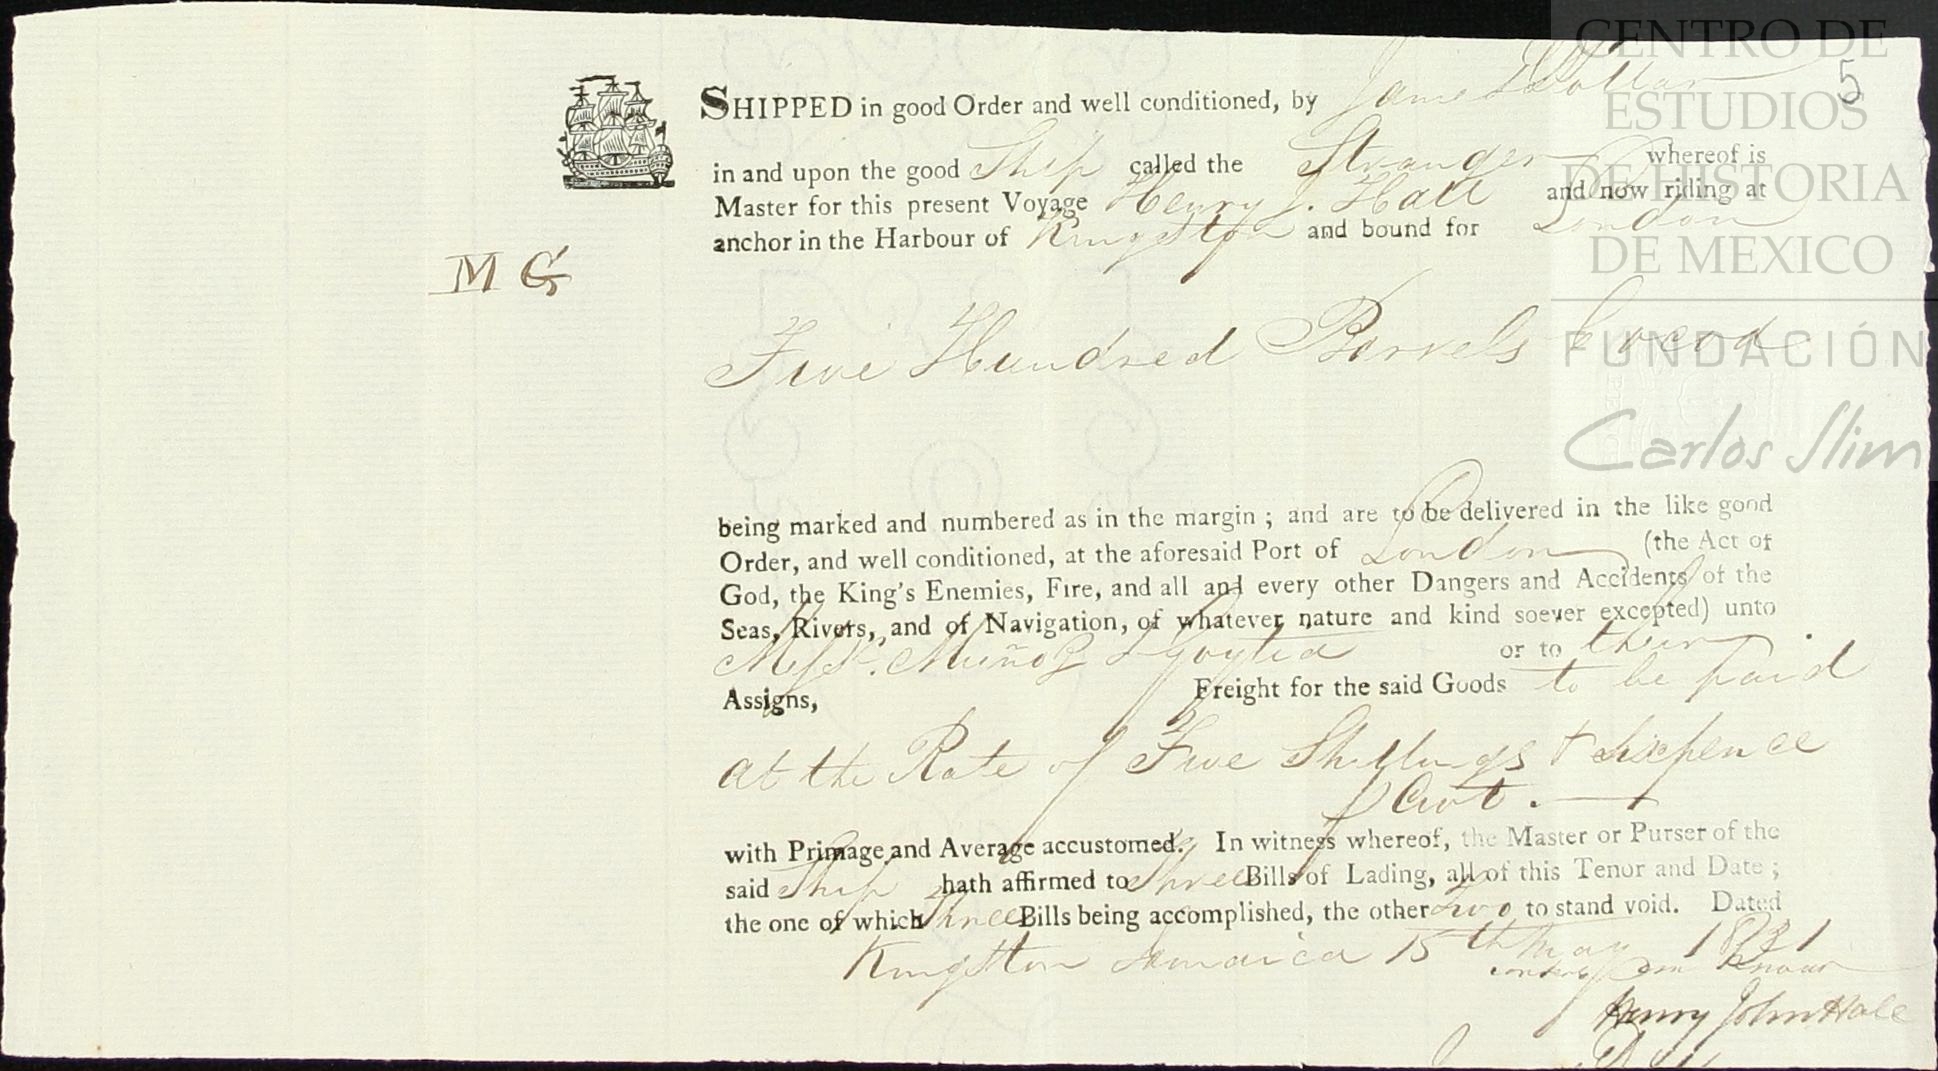 CENTRO DE
ESTUDIOS
DE HISTORIA
DE MEXICO
FUNDACIÓN
Carlos Slim
5
SHIPPED in good Order and well conditioned, by James
in and upon the good Ship called the Stranger whereof is
Master for this present Voyage Henry J. Hall and now riding at
anchor in the Harbour of Kingston and bound for London
M G
Five Hundred Barrels Cocoa
being marked and numbered as in the margin ; and are to be delivered in the like good
Order, and well conditioned, at the aforesaid Port of London (the Act of
God, the King's Enemies, Fire, and all and every other Dangers and Accidents of the
Seas, Rivers, and of Navigation, of whatever nature and kind soever excepted) unto
Messrs. Muñoz & Goytia or to their
Assigns, Freight for the said Goods to be paid
at the Rate of Five Shillings & Sixpence
p Cwt.
with Primage and Average accustomed. In witness whereof, the Master or Purser of the
said Ship hath affirmed to Three Bills of Lading, all of this Tenor and Date ;
the one of which Three Bills being accomplished, the other Two to stand void. Dated
Kingston Jamaica 15th May
Henry John Hall